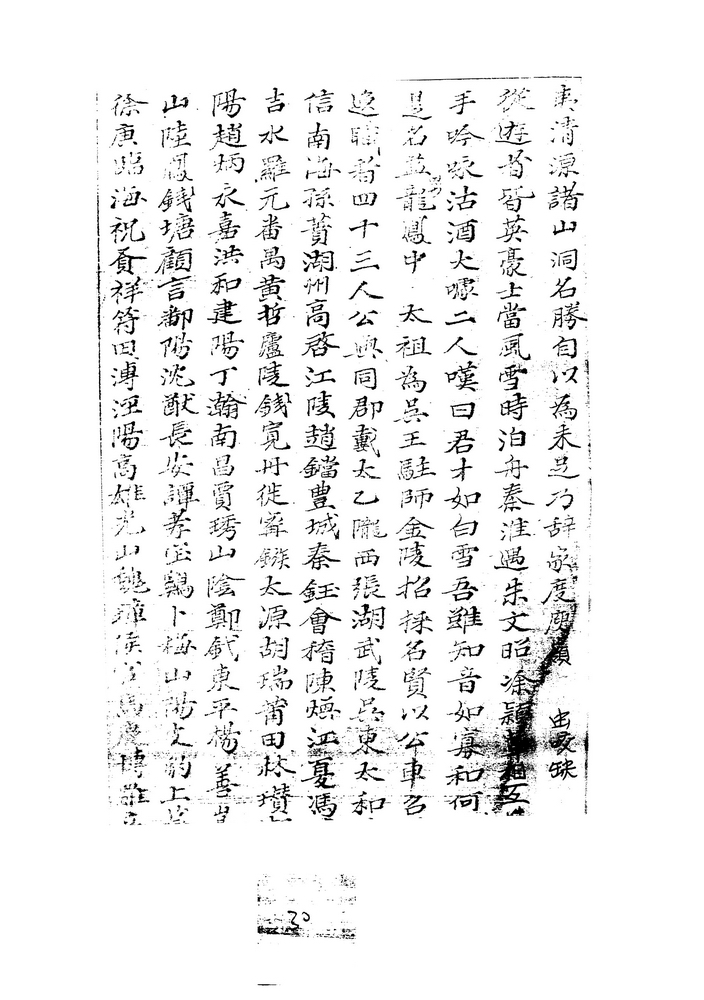 夷清源諸山洞名勝自以為未足乃辞家度庾嶺 由
從遊者皆英豪士當風雪時泊舟秦淮遇朱文昭涂穎 相互
手吟咏沽酒大嚎二人嘆曰君才如白雪吾雖知音如寡和何
是名益龍鳳中 太祖為吳王駐師金陵招採名賢以公車召
四十三人公與同郡戴太乙隴西張湖武陵吳東太和
信南海孫蕡湖州高啓江陵趙鐺豊城秦鈺會稽陳煥江夏馮
吉水羅元番禺黄哲廬陵錢寬丹徒寗鏃太源胡瑞莆田林瓚
陽趙炳永嘉洪和建陽丁瀚南昌賈琇山陰鄭鉞東平楊善
山陸 錢塘顧言鄱陽沈猷長安譚孝宝鷄卜梅山陽 上
徐庚臨海祝 祥符田溥涇陽高雄光山魏 馬 博
30